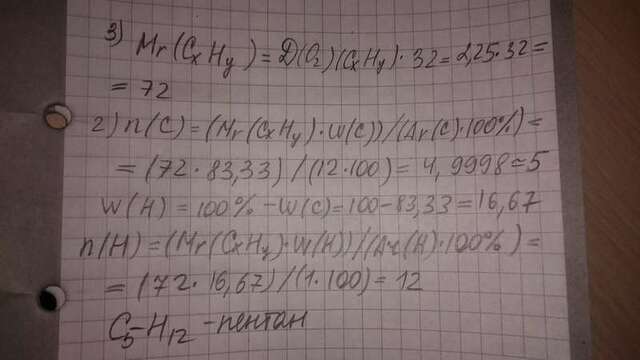 3) Mr(CxHy) = D(O2)(CxHy)·32 = 2,25·32 =
= 72
2) n(C) = (Mr(CxHy)·W(C))/(Ar(C)·100%) =
= (72·83,33)/(12·100) = 4,9998 = 5
W(H) = 100% - W(C) = 100 - 83,33 = 16,67
n(H) = (Mr(CxHy)·W(H))/(Ar(H)·100%) =
= (72·16,67)/(1·100) = 12
C5-H12 - пентан